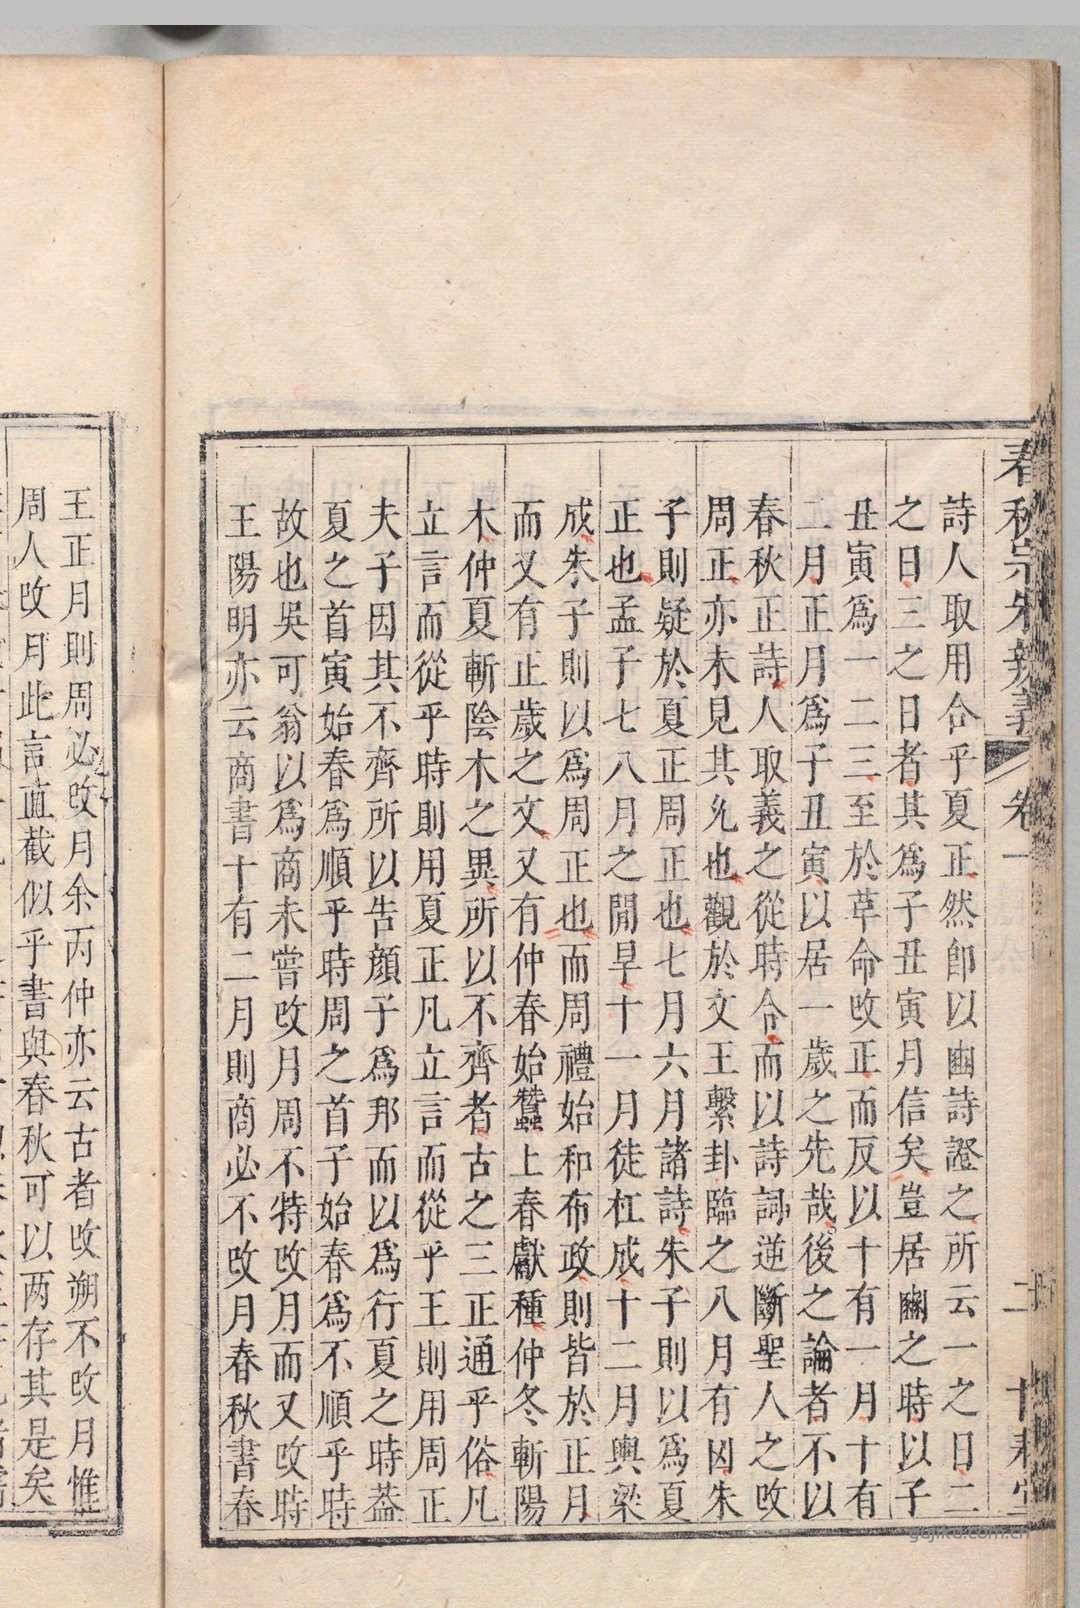 春秋宗朱辨義 卷一 二
詩人取用合乎夏正然卽以豳詩證之所云一之日二
之日三之日者其爲子丑寅月信矣豈居豳之時以子
丑寅爲一二三至於革命改正而反以十有一月十有
二月正月爲子丑寅以居一歲之先哉後之論者不以
春秋正詩人取義之從時令而以詩詞逆斷聖人之改
周正亦未見其允也觀於文王繫卦臨之八月有凶朱
子則疑於夏正周正也七月六月諸詩朱子則以爲夏
正也孟子七八月之閒旱十一月徒杠成十二月輿梁
成朱子則以爲周正也而周禮始和布政則皆於正月
而又有正歲之文又有仲春始蠶上春獻種仲冬斬陽
木仲夏斬陰木之異所以不齊者古之三正通乎俗凡
立言而從乎時則用夏正凡立言而從乎王則用周正
夫子因其不齊所以告顔子爲邦而以爲行夏之時葢
夏之首寅始春爲順乎時周之首子始春爲不順乎時
故也吳可翁以爲商未嘗改月周不特改月而又改時
王陽明亦云商書十有二月則商必不改月春秋書春
王正月則周必改月余丙仲亦云古者改朔不改月惟
周人改月此言直截似乎書與春秋可以两存其是矣
gujiku.com.cn